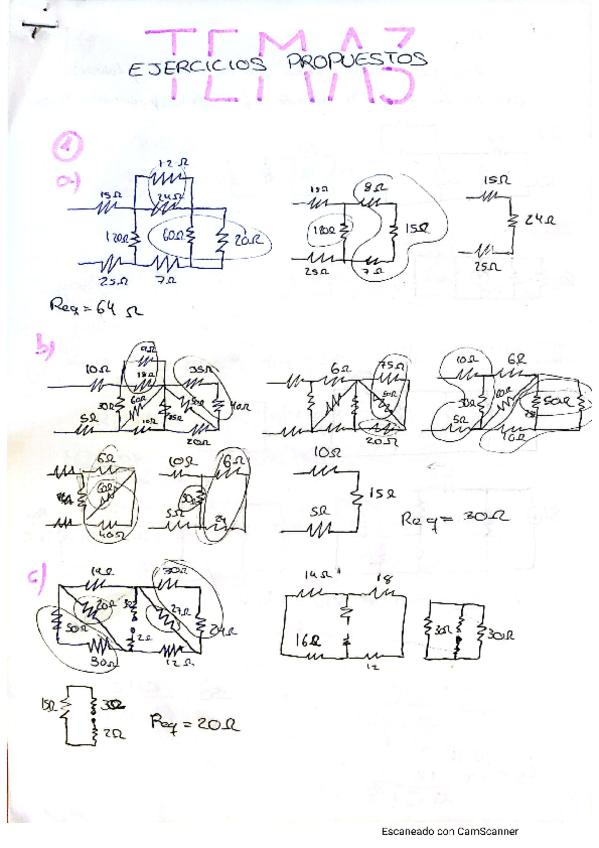 TEMA3
EJERCICIOS PROPUESTOS
1
a)
12Ω
24Ω
15Ω
120Ω
60Ω
20Ω
25Ω
7Ω
15Ω
8Ω
120Ω
15Ω
25Ω
7Ω
15Ω
24Ω
25Ω
Req = 64 Ω
b)
9Ω
10Ω
18Ω
35Ω
60Ω
30Ω
40Ω
5Ω
20Ω
6Ω
75Ω
20Ω
10Ω
6Ω
30Ω
50Ω
5Ω
40Ω
6Ω
60Ω
40Ω
10Ω
6Ω
5Ω
24
10Ω
15Ω
5Ω
Req = 30Ω
c)
14Ω
30Ω
20Ω
3Ω
27Ω
24Ω
50Ω
2Ω
30Ω
12Ω
14Ω
18
16Ω
12
30Ω
30Ω
15Ω
3Ω
2Ω
Req = 20Ω
Escaneado con CamScanner